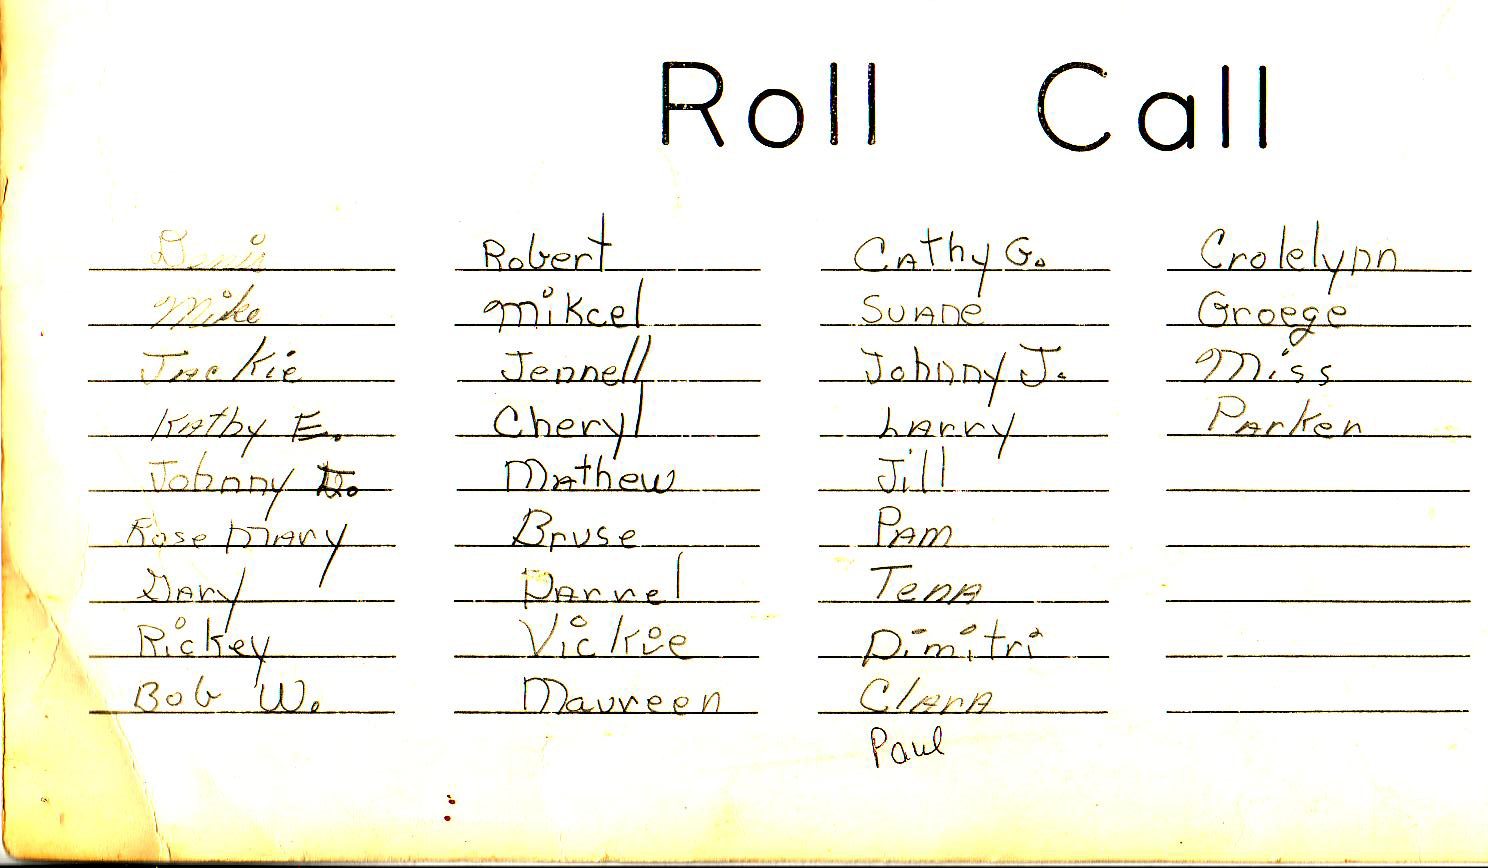 Roll Call
Denis
Mike
Jackie
Kathy E.
Johnny D.
Rose Mary
Gary
Rickey
Bob W.
Robert
Mikcel
Jennell
Cheryl
Mathew
Bruse
Darrel
Vickie
Maureen
Cathy G.
Suane
Johnny J.
Larry
Jill
Pam
Tena
Dimitri
Clara
Paul
Crolelynn
Groege
Miss
Parker